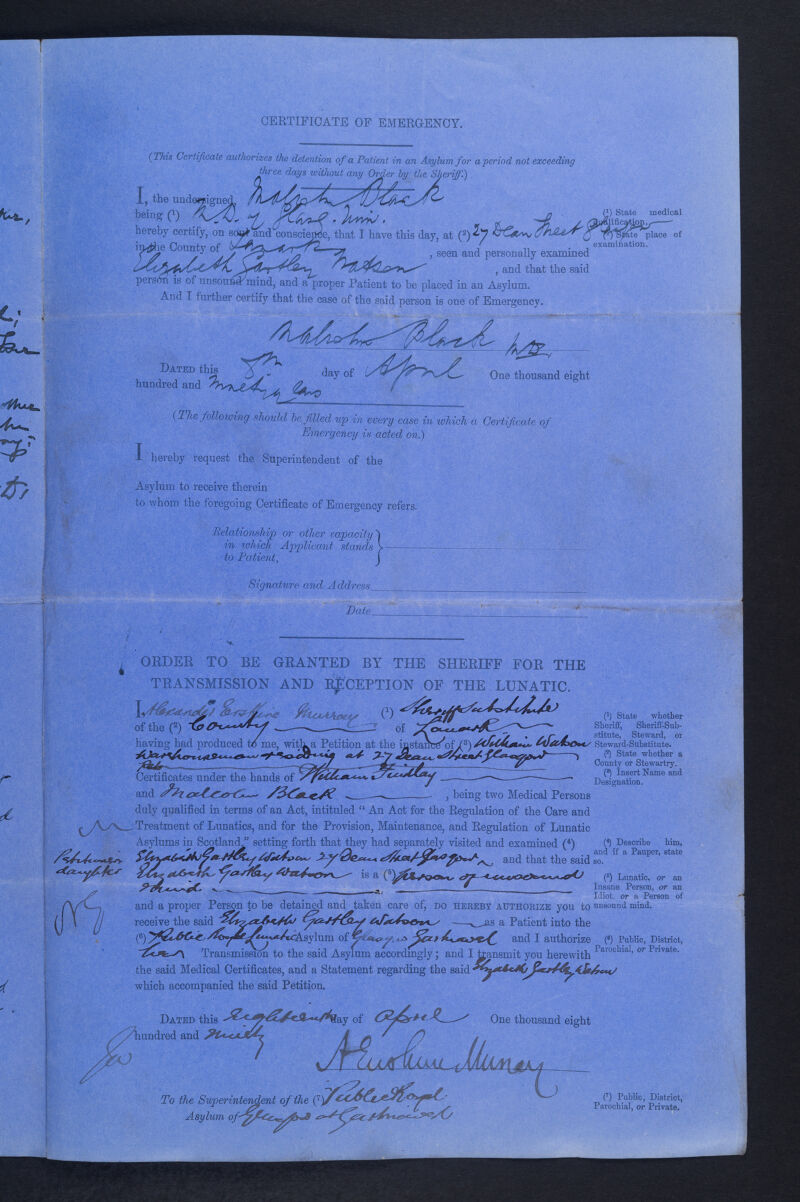 CERTIFICATE OF EMERGENCY.
(This Certificate authorizes the detention of a Patient in an Asylum for a period not exceeding
three days without any Order by the Sheriff.)
I, the undersigned, Malcolm Black
being (1) M.D. of Glasg. Univ.
(1) State medical
qualification.
hereby certify, on soul and conscience, that I have this day, at (2) 27 Dean Street
(2) State place of
examination.
in the County of Lanark, seen and personally examined
Elizabeth Gartley Watson, and that the said
person is of unsound mind, and a proper Patient to be placed in an Asylum.
And I further certify that the case of the said person is one of Emergency.
Malcolm Black
DATED this day of April One thousand eight
hundred and
(The following should be filled up in every case in which a Certificate of
Emergency is acted on.)
I hereby request the Superintendent of the
Asylum to receive therein
to whom the foregoing Certificate of Emergency refers.
Relationship or other capacity
in which Applicant stands
to Patient,
Signature and Address
Date
ORDER TO BE GRANTED BY THE SHERIFF FOR THE
TRANSMISSION AND RECEPTION OF THE LUNATIC.
I, Alexander Erskine Murray (1) Sheriff Substitute
of the (2) County of Lanark
(1) State whether
Sheriff, Sheriff-Sub-
stitute, Steward, or
Steward-Substitute.
having had produced to me, with a Petition at the instance of (3) William Watson
warehouseman residing at 27 Dean Street Glasgow
(2) State whether a
County or Stewartry.
(3) Insert Name and
Designation.
Certificates under the hands of William Findlay
and Malcolm Black, being two Medical Persons
duly qualified in terms of an Act, intituled "An Act for the Regulation of the Care and
Treatment of Lunatics, and for the Provision, Maintenance, and Regulation of Lunatic
Asylums in Scotland," setting forth that they had separately visited and examined (4)
(4) Describe him,
and if a Pauper, state
so.
Petitioner's
daughter
Elizabeth Gartley Watson 27 Dean Street Glasgow and that the said
Elizabeth Gartley Watson is a (5) person of unsound
mind
(5) Lunatic, or an
Insane Person, or an
Idiot, or a Person of
unsound mind.
and a proper Person to be detained and taken care of, DO HEREBY AUTHORIZE you to
receive the said Elizabeth Gartley Watson as a Patient into the
(6) Public Royal Lunatic Asylum of Glasgow Gartnavel and I authorize
(6) Public, District,
Parochial, or Private.
her Transmission to the said Asylum accordingly; and I transmit you herewith
the said Medical Certificates, and a Statement regarding the said Elizabeth Gartley Watson
which accompanied the said Petition.
DATED this Eighteenth day of April One thousand eight
hundred and ninety
A Erskine Murray
To the Superintendent of the (7) Public Royal
Asylum of Glasgow at Gartnavel
(7) Public, District,
Parochial, or Private.